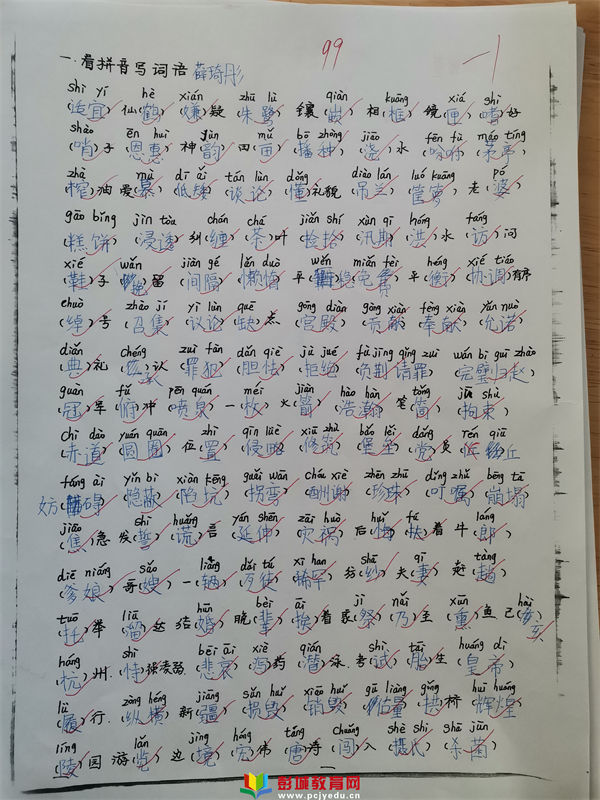 99
一.看拼音写词语 薛琦彤
shì yí hè xián zhū lù qiàn kuāng xiá shì
(适宜)仙(鹤)(嫌)疑(朱鹭)镶(嵌)相(框)镜(匣)(嗜)好
shào ēn huì yùn mǔ bō zhǒng jiāo fēn fù máo tíng
(哨)子(恩惠)神(韵)四(亩)(播种)(浇)水(吩咐)(茅亭)
zhà mù dī ǎi tán lùn dǒng diào lán luó kuāng pó
(榨)油爱(慕)(低矮)(谈论)(懂)礼貌(吊兰)(箩筐)老(婆)
gāo bǐng jìn tòu chán chá jiǎn shí xùn qī hóng fǎng
(糕饼)(浸透)纠(缠)(茶)叶(捡拾)(汛期)(洪)水(访)问
xié wǎn jiàn gé lǎn duò wěn miǎn fèi héng xié tiáo
(鞋)子(挽)留(间隔)(懒惰)平(稳)(免费)平(衡)(协调)有序
chuò zhào jí yì lùn quē gōng diàn gòng xiàn fèng xiàn yǔn nuò
(绰)号(召集)(议论)(缺)点(宫殿)(贡献)(奉献)(允诺)
diǎn chéng zuì fàn dǎn qiè jù jué fù jīng qǐng zuì wán bì guī zhào
(典)礼(承)认(罪犯)(胆怯)(拒绝)(负荆请罪)(完璧归赵)
guàn fǔ pēn quán méi jiàn hào hàn tǒng jū shù
(冠)军(俯)冲(喷泉)一(枚)火(箭)(浩瀚)笔(筒)(拘束)
chì dào yuán quān zhì qīn lüè xiū zhù bǎo lěi dǎng rén qiū
(赤道)(圆圈)位(置)(侵略)(修筑)(堡垒)(党)员(任丘)丘
fáng ài yǐn bì xiàn kēng guǎi wān chóu xiè zhēn zhū dīng zhǔ bēng tā
妨(碍)(隐蔽)(陷坑)(拐弯)(酬谢)(珍珠)(叮嘱)(崩塌)
jiāo shì huǎng yán shēn zāi huò huǐ fú láng
(焦)急 发(誓)(谎)言(延伸)(灾祸)后(悔)(扶)着 牛(郎)
diē niáng sǎo liàng dǎi tú xī han shā qī tàng
(爹娘)哥(嫂)一(辆)(歹徒)(稀罕)纺(纱)夫(妻)赶(趟)
tuō liū hūn bèi āi jì nǎi xūn hài
(托)举(溜)达 结(婚)晚(辈)(挨)着 家(祭)(乃)至(熏)鱼 己(亥)
háng shì bēi āi xiè shì tāi huáng dì
杭)州.(恃)强凌弱(悲哀)(泻)药(溜)冰 考(试)(胎)生(皇帝)
lǚ zòng héng jiāng sǔn huǐ xiāo huǐ gū liáng gǒng huī huáng
(履)行.(纵横)新(疆)(损毁)(销毁)(估量)(拱)桥(辉煌)
líng lǎn jìng hóng táng chuǎng shè shì shā jūn
(陵)园 游(览)边(境)(宏)伟(唐)诗(闯)入(摄氏)(杀菌)
彭城教育网
www.pcjyedu.cn